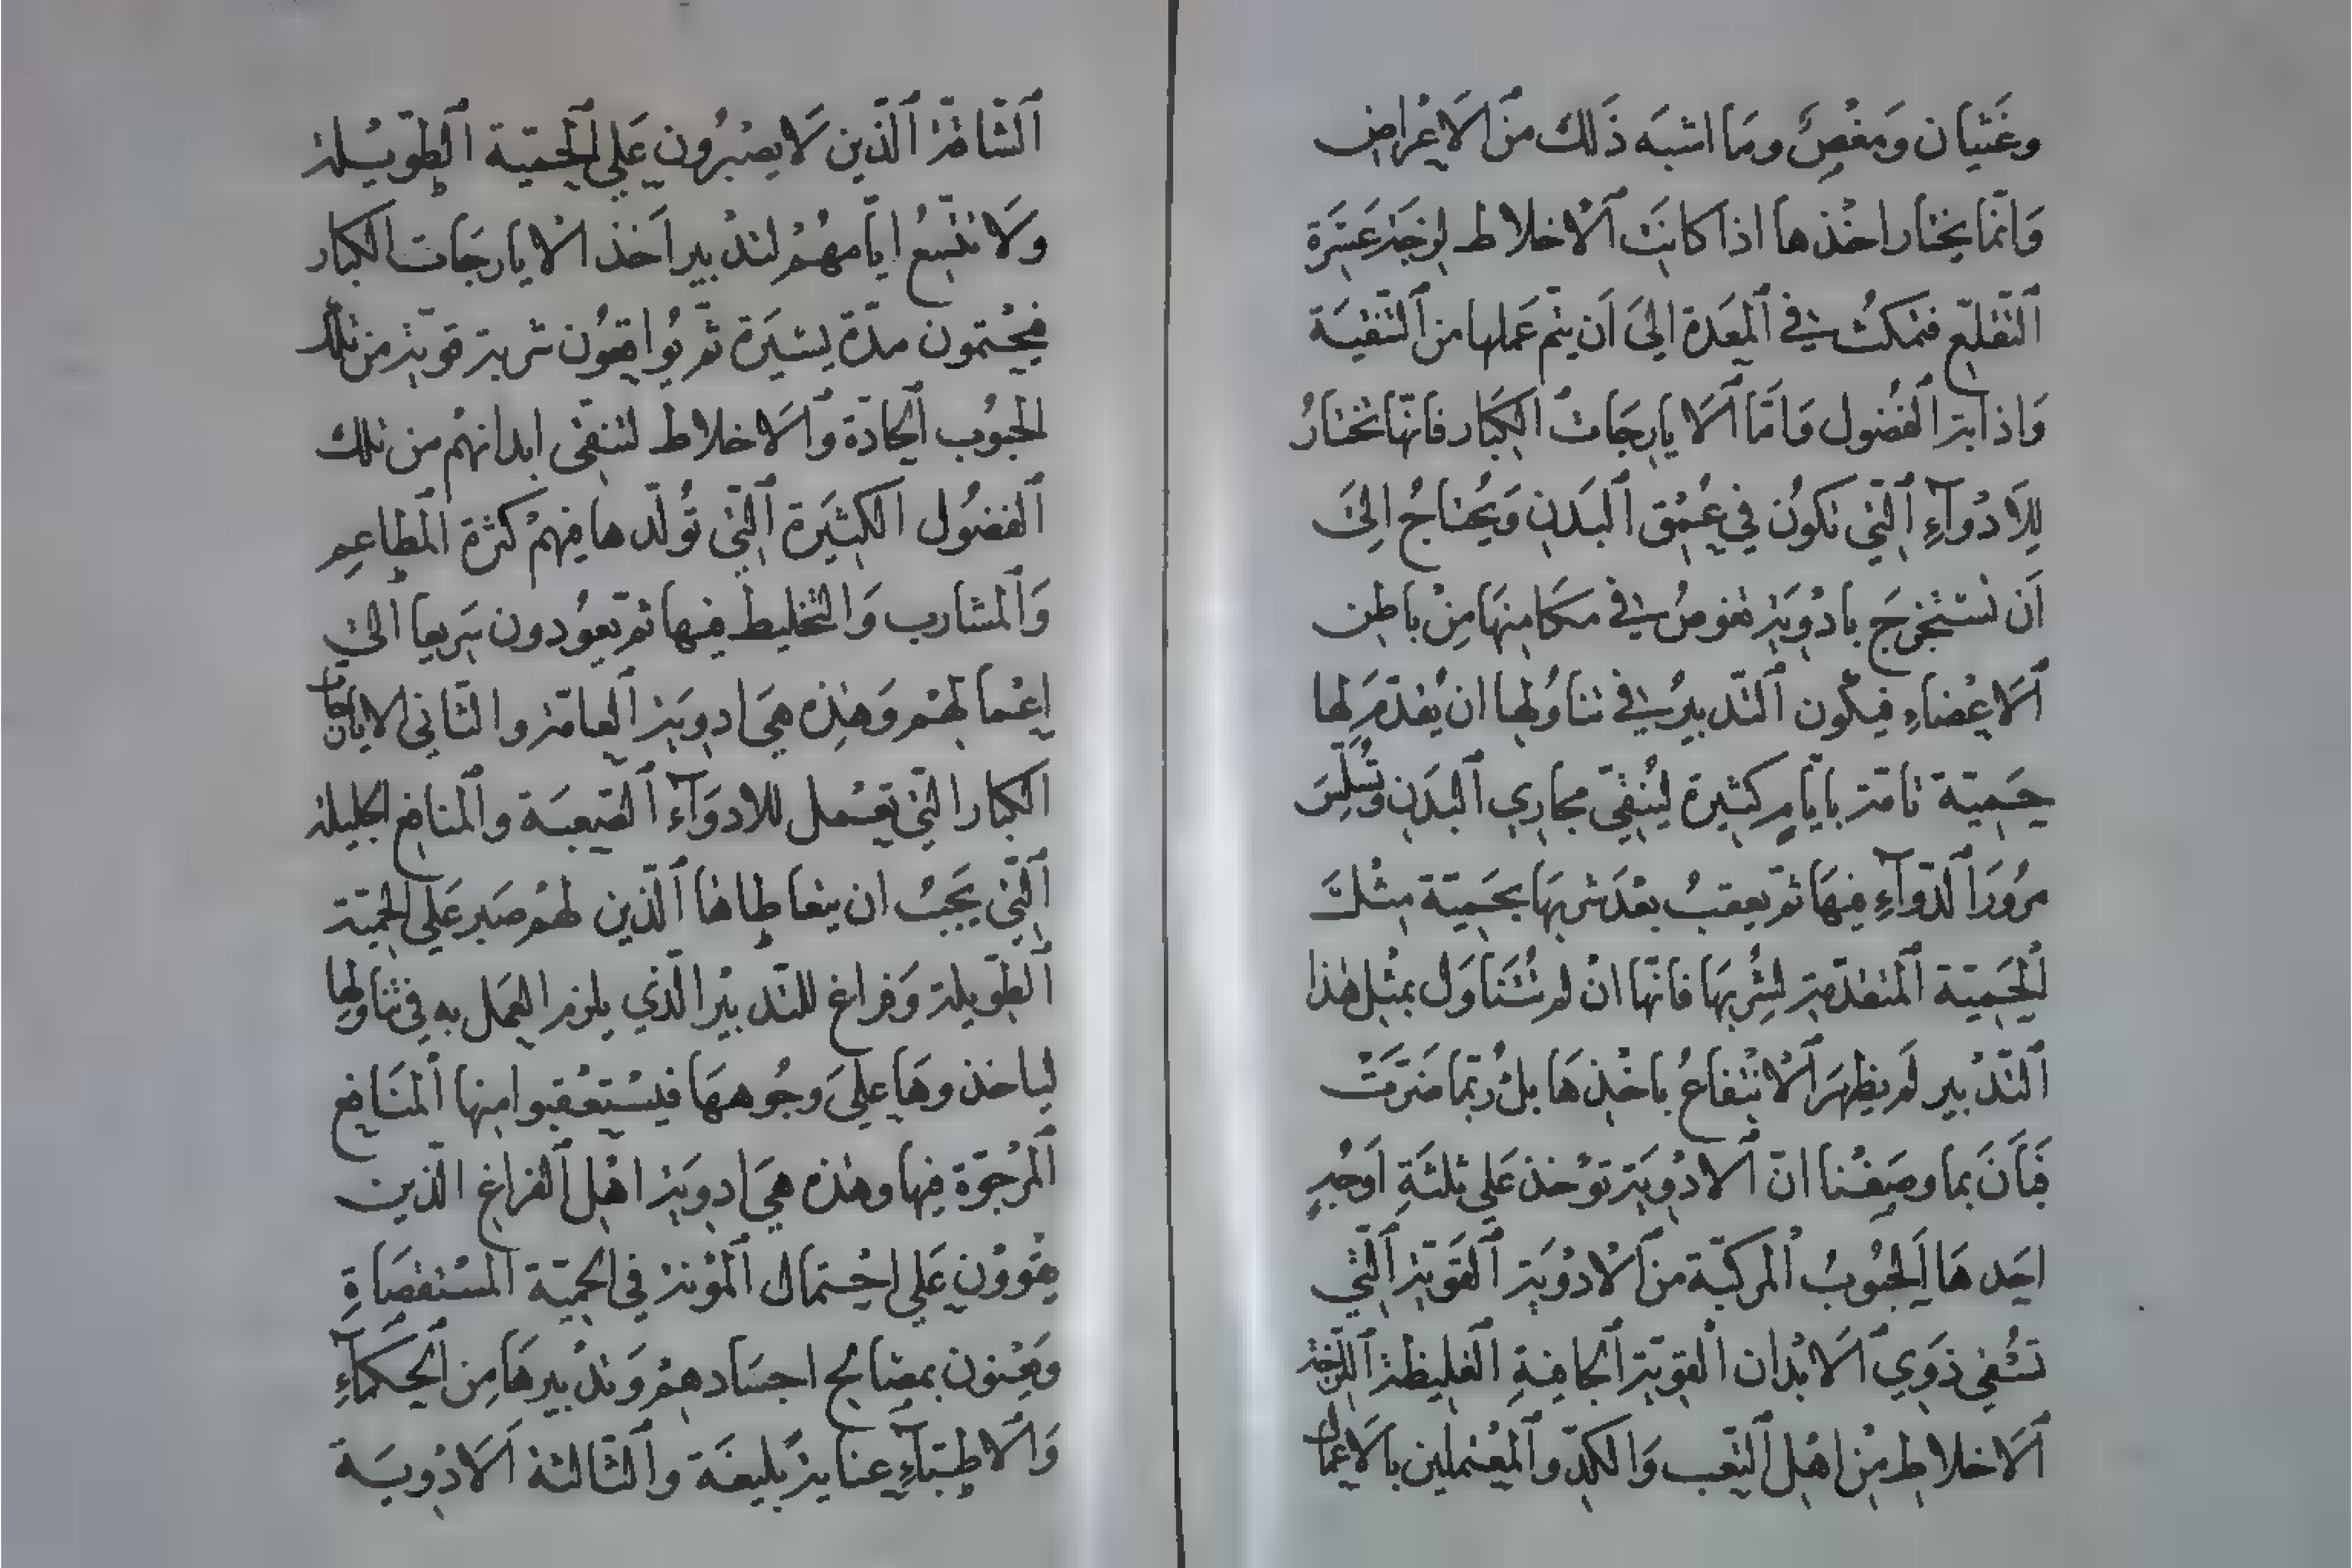 وغَثيان وَمغْصٍ ومَا اشبَه ذَلك منَ الاعْراض
وَانّما يختار اخْذها اذا كانَت الاخلاط لزجَة عَسِرَة
التّقلّع فتمكثُ في المعَدة الىَ اَن يتم عَملها من التّنقيَة
وَاذابة الفضُول وَامّا الايارجَات الكبَار فانّها تختارُ
لِلاَدْوآءِ التّي تكوُن في عُمْق البَدن وَيُحتاجُ الِىَ
اَن تستَخْرجَ بادْويَة تغوصُ في مكامِنهَا مِنْ باطِن
الاعْضاءِ فيكُون التّدبيرُ في تناوُلها ان يُقدّمَ لها
حِميَة تامّة بايّامٍ كثيرة ليُنقّي مجاري البَدن وتُسلّسَ
مرُورَ الدّوآءِ فيهَا ثم يعقبُ بعْدَ شربهَا بحَميَة مِثْلَ
الحَميَة المتقدّمة لشُربهَا فانّها انْ لم تُتَناوَل بمثل هذا
التّدْبير لم يظهَر الانْتفاعُ باخْذهَا بلْ رُبّما ضَرّتْ
فَبَانَ بما وصَفْنا انّ الادْويَة توْخذ عَلى ثلثَةِ اَوجُهٍ
احَدهَا الحبُوبُ المركّبة منَ الادْويَة القَويّة التّي
تشْفي ذوَي الابْدان القويّة الجافيةِ الغليظة اللّزجة
الاخلاط منْ اهْل التّعب وَالكدّ والمعْتملين بالاعمال
الشّاقّة الذّين لا يصْبرُون عَلى الحميّة الطّويْلة
وَلا تتّسعُ ايّامهُمْ لتدْبير اَخذ الايارجَات الكبار
فيحْتمون مدّة يسيَرة ثم يُواقعُون شربة قويّة من تلك
الحبُوب الحادّة والاخلاط لتنقّى ابدانهُم من تلك
الفضُول الكثيَرة التّي تُولّدها فيهمْ كثرة المطاعِم
وَالمشارب وَالتّخليط فيها ثم يعوُدون سَريعا الىَ
اعْمالهمْ وَهٰذه هيَ ادويَة العامّة والثّاني الايارجات
الكبار التّي تعْمل للادوَآءِ الصّعبَة والمنافع الجليلة
التّي يَجبُ ان يتعاطاها الذّين لهمْ صَبر عَلى الحميّة
الطّويلة وَفراغ للتّدبيْر الذّي يلزم العمَل به في تناولها
لياخذوهَا علىَ وجُوههَا فيسْتعْقبوا منها المنَافع
المرْجوّة فيها وهٰذه هيَ ادويَة اهْل الفراغ الذّين
يقوَوْن عَلى احْتمال المؤنة في الحميّة المسْتقصَاةِ
ويَعْنون بمصَالح اجسَادهمْ وَتدْبيرهَا مِن الحكمآءِ
وَالاطبّآءِ عنايَة بليغَة والثّالثة الادْويَة